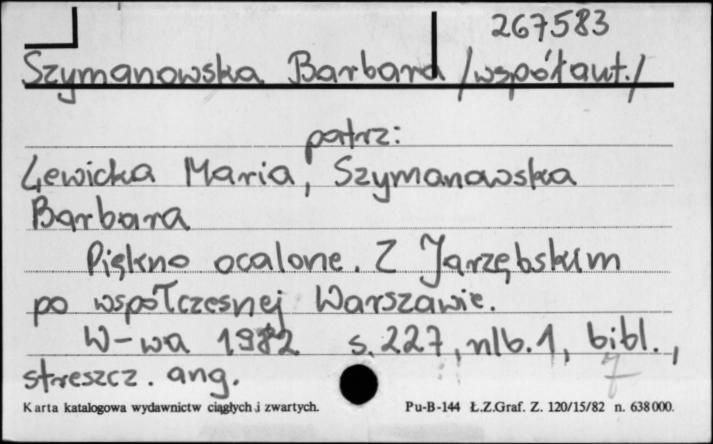 267583
Szymanowska Barbara /współaut./
patrz:
Lewicka Maria, Szymanowska
Barbara
Piękno ocalone. Z Jarzębskim
po współczesnej Warszawie.
W-wa 1982 s. 227, nlb. 1, bibl.,
streszcz. ang.
7
Karta katalogowa wydawnictw ciągłych i zwartych. Pu-B-144 Ł.Z.Graf. Z. 120/15/82 n. 638 000.